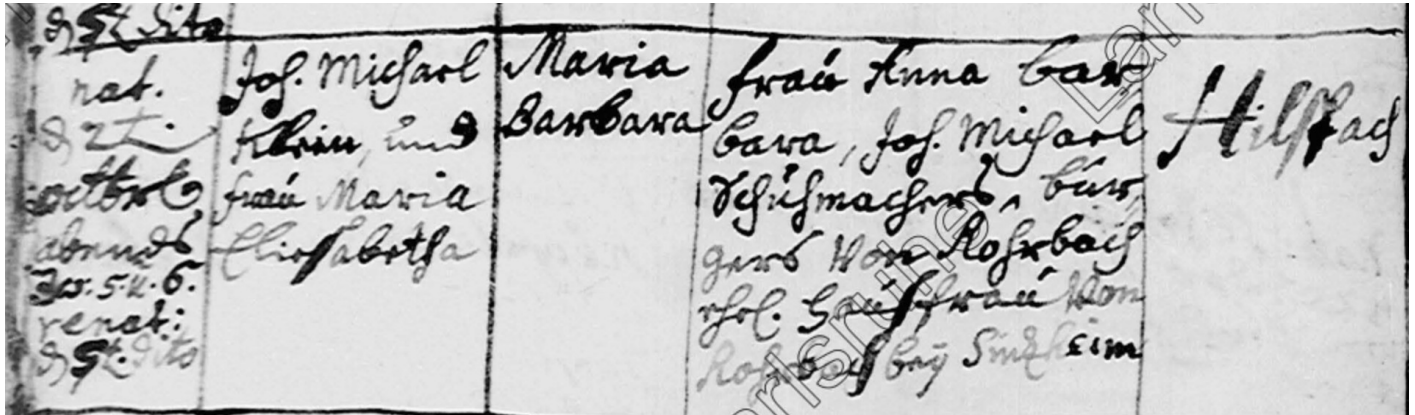 d 5t. dito
nat.
d 2t.
octbr.
abends
zw. 5. u. 6.
renat:
d 5t. dito
Joh. Michael
Klein, und
frau Maria
Eliessabetha
Maria
Barbara
frau Anna bar
bara, Joh. Michael
Schuhmachers, bür,
gers von Rohrbach
ehel. Haussfrau von
Rohrbach bey Sintzheim
Hilspach